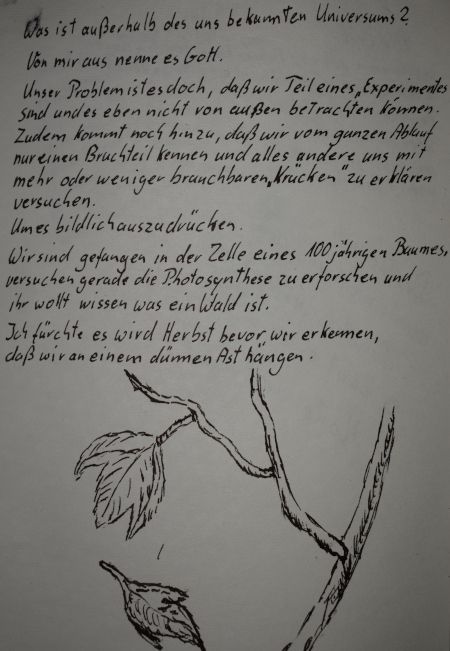 Was ist außerhalb des uns bekannten Universums?
Von mir aus nenne es Gott.
Unser Problem ist es doch, daß wir Teil eines „Experimentes
sind und es eben nicht von außen betrachten können.
Zudem kommt noch hinzu, daß wir vom ganzen Ablauf
nur einen Bruchteil kennen und alles andere uns mit
mehr oder weniger brauchbaren „Krücken" zu erklären
versuchen.
Um es bildlich auszudrücken.
Wir sind gefangen in der Zelle eines 100 jährigen Baumes,
versuchen gerade die Photosynthese zu erforschen und
ihr wollt wissen was ein Wald ist.
Ich fürchte es wird Herbst bevor wir erkennen,
daß wir an einem dünnen Ast hängen.